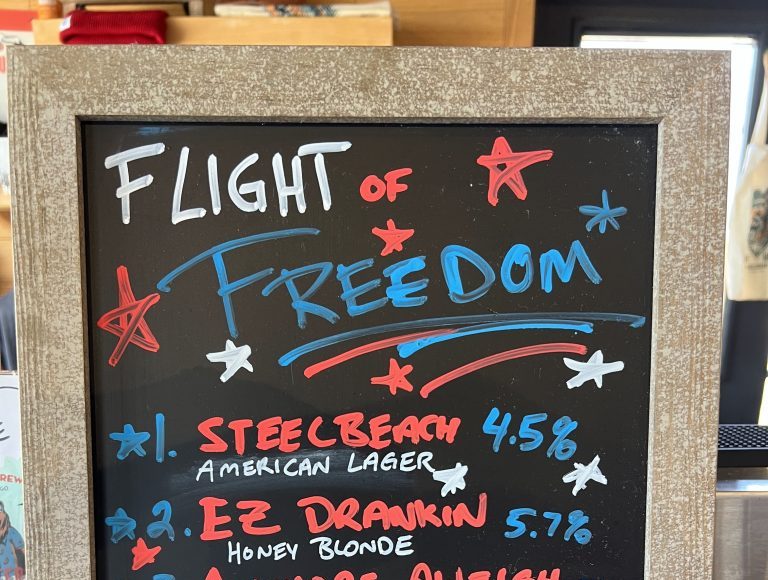 FLIGHT OF
FREEDOM
1. STEELBEACH 4.5%
AMERICAN LAGER
2. EZ DRANKIN 5.7%
HONEY BLONDE